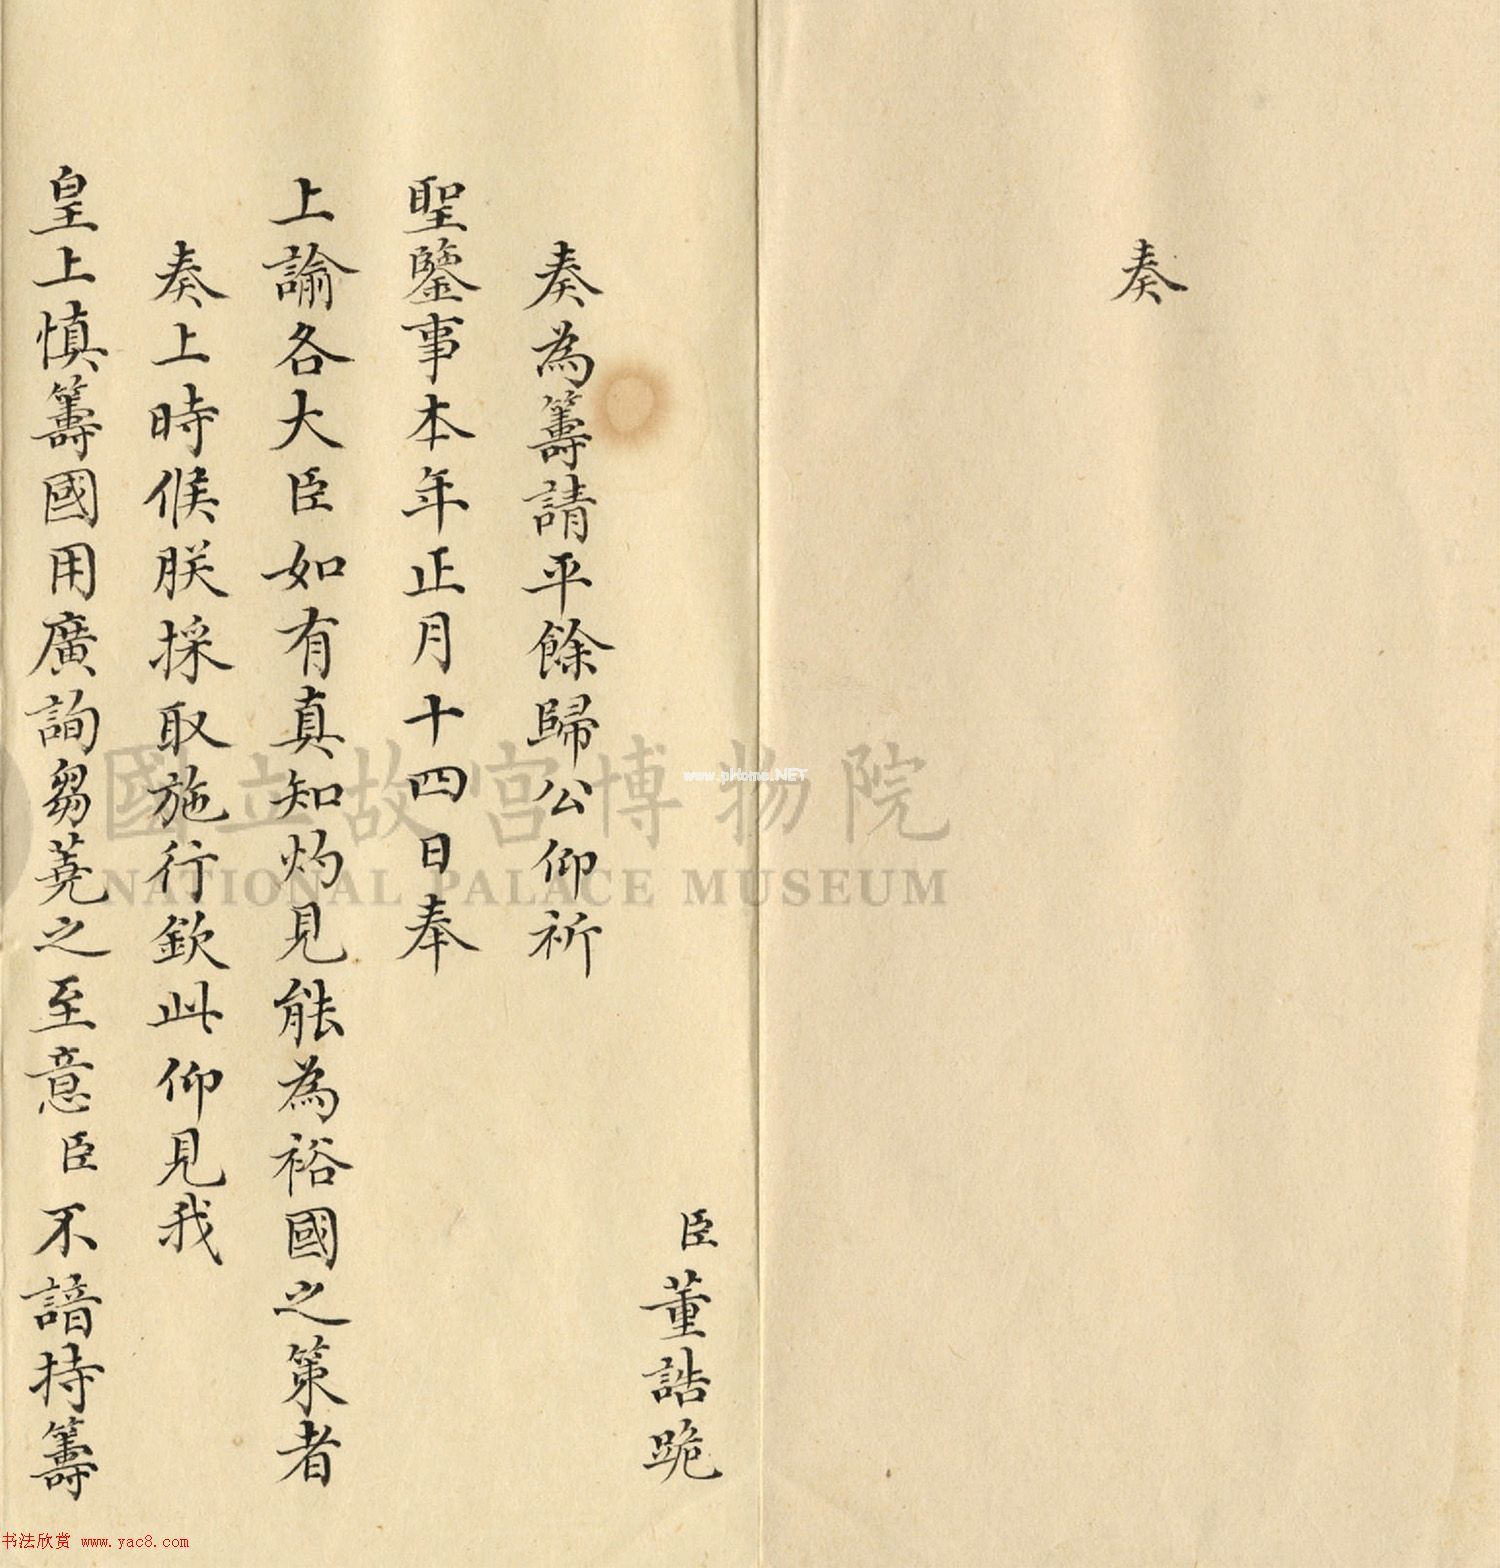 奏
臣董誥跪
奏為籌請平餘歸公仰祈
聖鑒事本年正月十四日奉
上諭各大臣如有真知灼見能為裕國之策者
奏上時候朕採取施行欽此仰見我
皇上慎籌國用廣詢芻蕘之至意臣不諳持籌
國立故宮博物院
NATIONAL PALACE MUSEUM
www.pHome.NET
书法欣赏 www.yac8.com